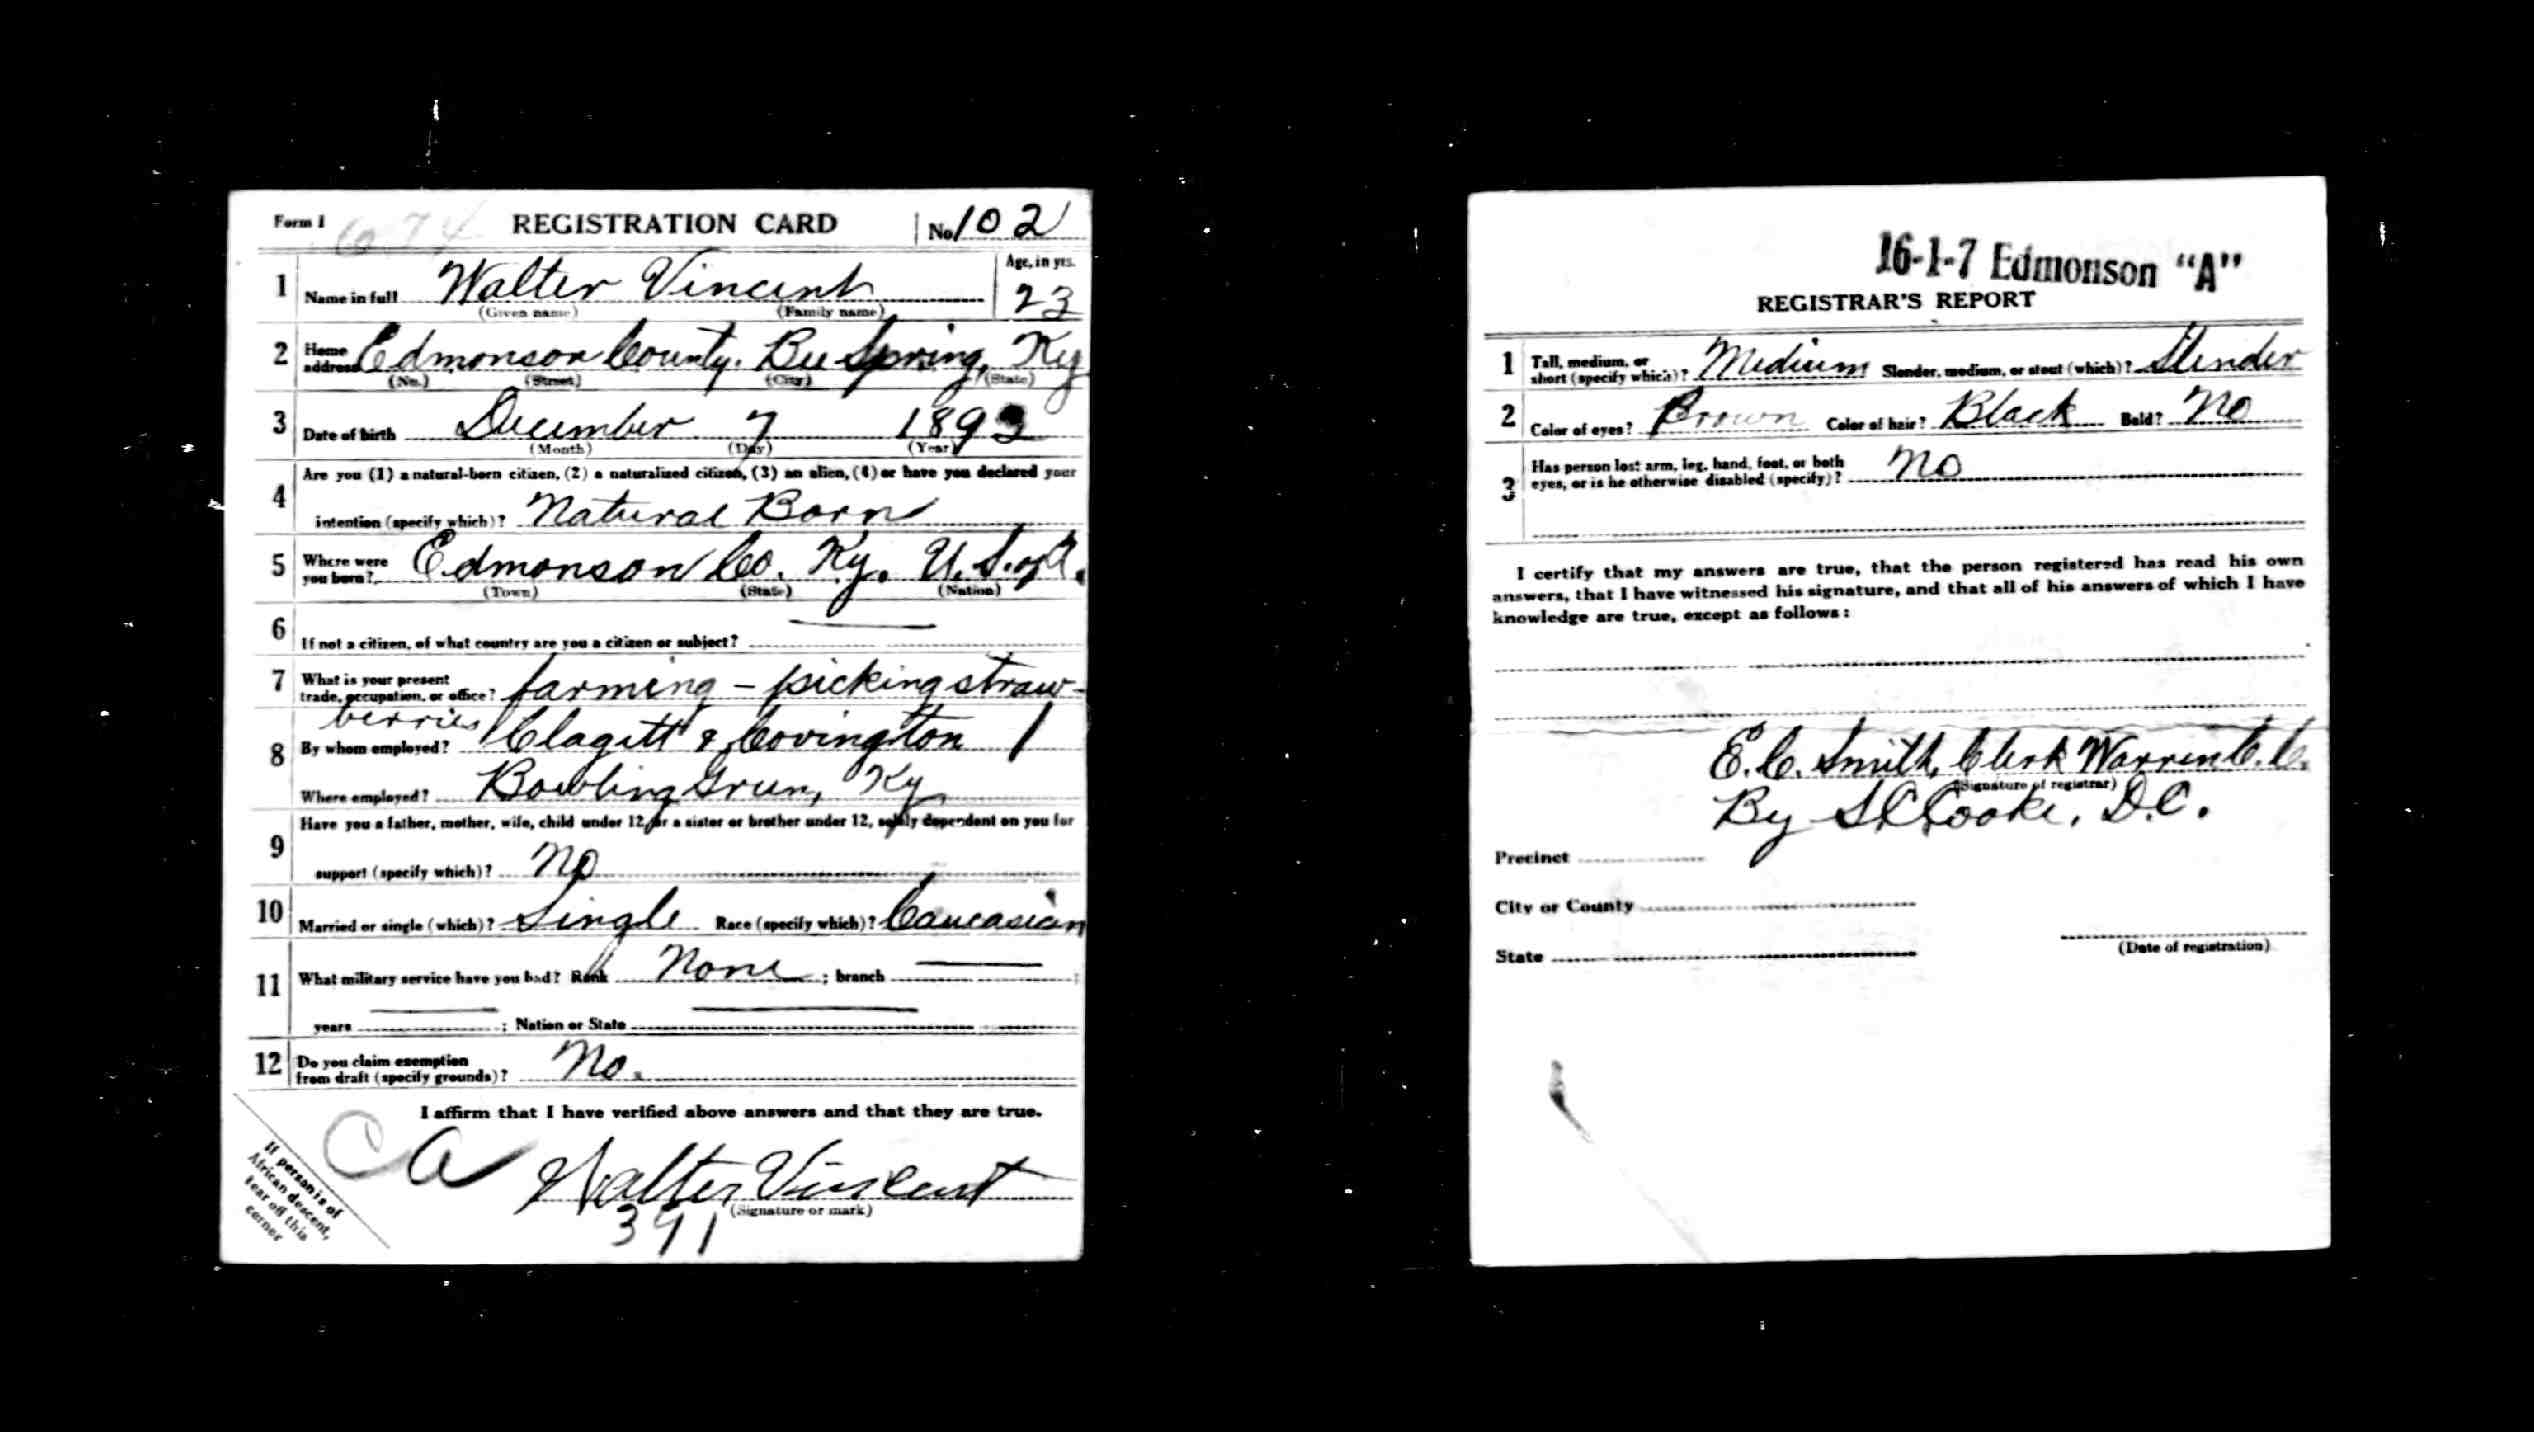 Form 1 674 REGISTRATION CARD No. 102
1 Name in full Walter Vincent Age, in yrs. 23
(Given name) (Family name)
2 Home address Edmonson County. Bee Spring, Ky
(No.) (Street) (City) (State)
3 Date of birth December 7 1893
(Month) (Day) (Year)
4 Are you (1) a natural-born citizen, (2) a naturalized citizen, (3) an alien, (4) or have you declared your
intention (specify which)? Natural Born
5 Where were you born? Edmonson Co. Ky. U.S. of A.
(Town) (State) (Nation)
6 If not a citizen, of what country are you a citizen or subject?
7 What is your present
trade, occupation, or office? farming - picking straw-
berries
8 By whom employed? Clagett & Covington 1
Where employed? Bowling Green, Ky
9 Have you a father, mother, wife, child under 12, or a sister or brother under 12, solely dependent on you for
support (specify which)? No
10 Married or single (which)? Single Race (specify which)? Caucasian
11 What military service have you had? Rank None ; branch ;
years ; Nation or State
12 Do you claim exemption
from draft (specify grounds)? No.
I affirm that I have verified above answers and that they are true.
C a Walter Vincent
(Signature or mark)
391
If person is of
African descent,
tear off this
corner
16-1-7 Edmonson "A"
REGISTRAR'S REPORT
1 Tall, medium, or
short (specify which)? Medium Slender, medium, or stout (which)? Slender
2 Color of eyes? Brown Color of hair? Black Bald? No
3 Has person lost arm, leg, hand, foot, or both
eyes, or is he otherwise disabled (specify)? No
I certify that my answers are true, that the person registered has read his own
answers, that I have witnessed his signature, and that all of his answers of which I have
knowledge are true, except as follows:
E.C. Smith, Clerk Warren C. C.
(Signature of registrar)
By S C Cooke, D.C.
Precinct
City or County
State
(Date of registration)